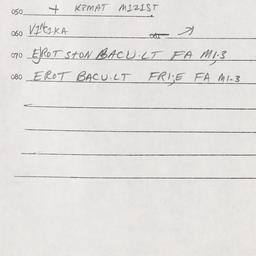 050 + KPMAT M1Z1ST
060
070 EROT STON BACU.LT FA M1-3
080 EROT BACU.LT FRI;E FA M1-3